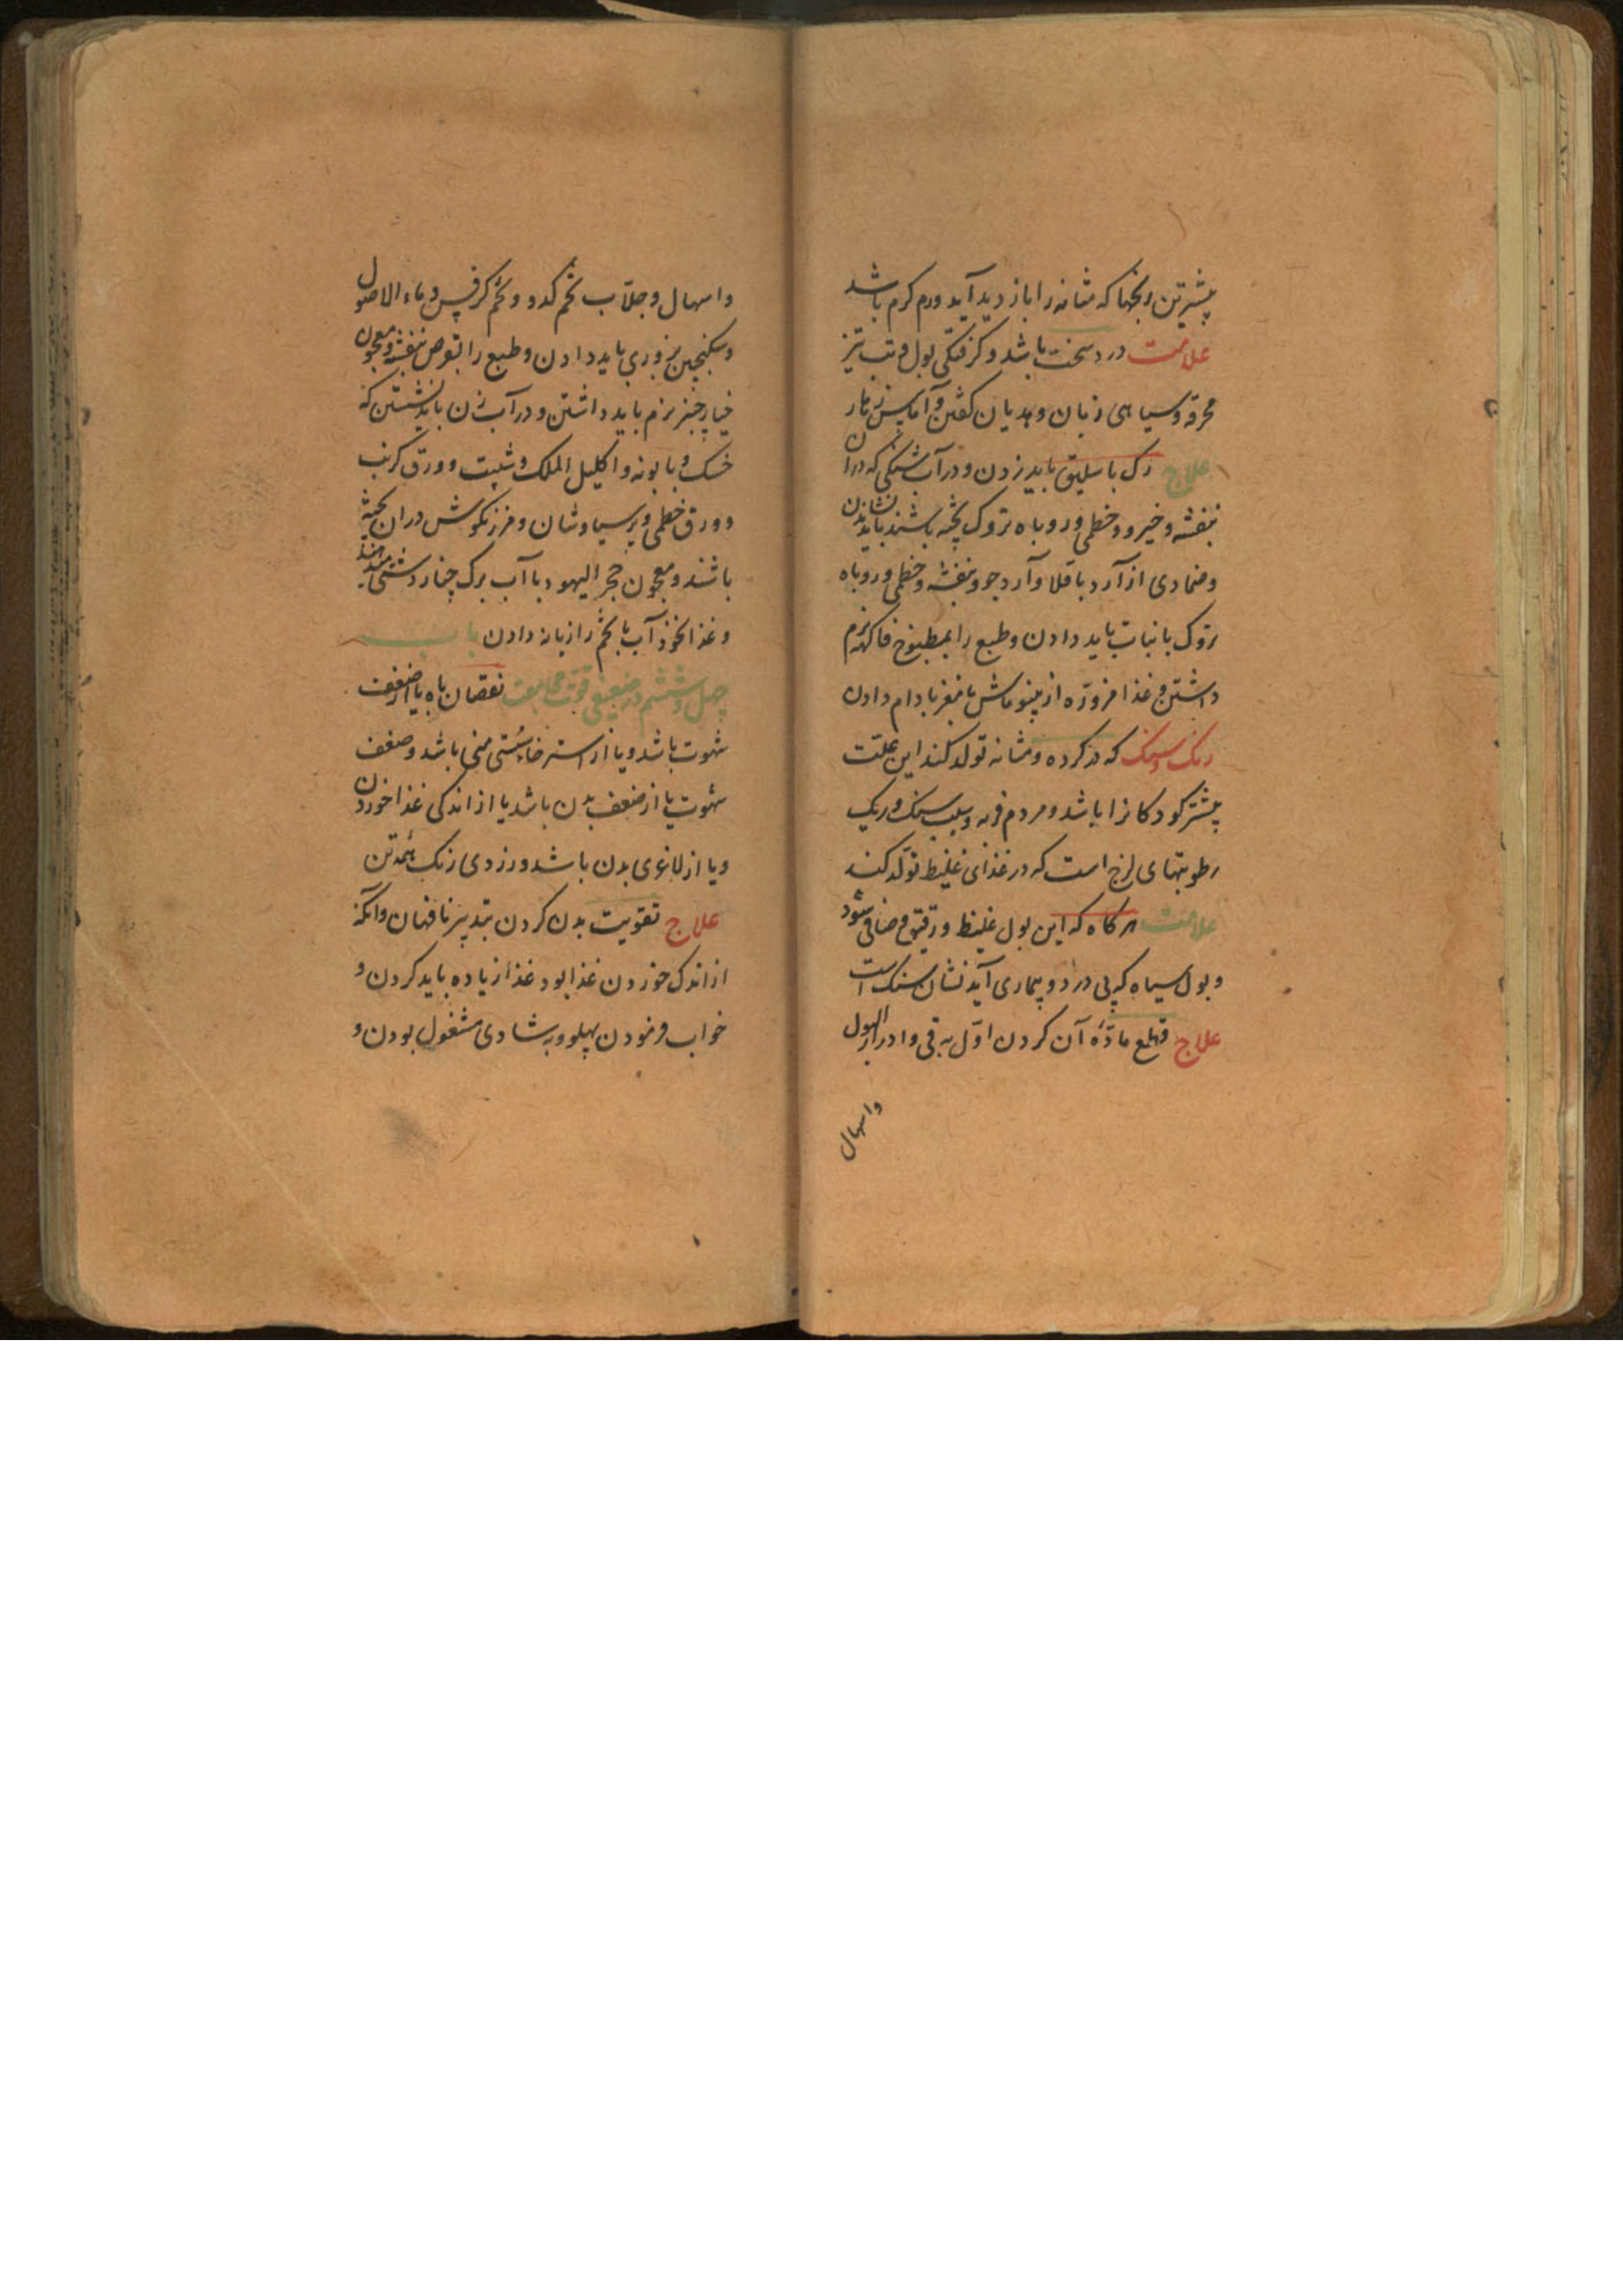 پیشترین رنجها که مثانه را باز دید آید ورم کرم باشد
علامت درد سخت باشد و کرفتکی بول و تب تیز
محرقه و سیاهی زبان و هدیان کفتن و آماس زهار
علاج رک باسلیق باید زدن و در آب شنکی که در آن
بنفشه و خیرو و خطمی و روباه تروک پخته باشند باید نشاندن
و ضمادی از آرد باقلا و آرد جو و بنفشه و خطمی و روباه
تروک با نبات باید دادن و طبع را بمطبوخ فاکهه نرم
داشتن و غذا مزوره از پینو ماش با مغز بادام دادن
ریک و سنک که در کرده و مثانه تولد کند این علت
پیشتر کودکانرا باشد و مردم فربه و سبب سنک و ریک
رطوبتهای لزج است که در غذای غلیظ تولد کند
علامت هرکاه که این بول غلیظ و رقیق و صافی شود
و بول سیاه که بی درد و بیماری آید نشان سنک است
علاج قطع مادّه آن کردن اوّل به قی و ادرار البول
واسهال
واسهال و جلّاب تخم کدو و تخم کرفس و ماء الاصول
و سکنجبین بزوری باید دادن و طبع را بقرص بنفشه و معجون
خیارچنبر نرم باید داشتن و در آب زن باید نشستن که
خسک و بابونه و اکلیل الملک و شبت و ورق کرنب
و ورق خطمی و پرسیاوشان و مرزنکوش در ان پخته
باشند و معجون حجر الیهود با آب برک چنار دشتی
و غذا نخوذ آب با تخم رازیانه دادن باب
چهل و ششم در ضعیفی قوّت مجامعت نقصان باه یا از ضعف
شهوت باشد و یا از استرخا و سُستی منی باشد و ضعف
شهوت یا از ضعف بدن باشد یا از اندکی غذا خوردن
و یا از لاغری بدن باشد و زردی رنک همه تن
علاج تقویت بدن کردن بتدبیر ناقهان و آنکه
از اندک خوردن غذا بود غذا زیاده باید کردن و
خواب فرمودن بپهلو و به شادی مشغول بودن و